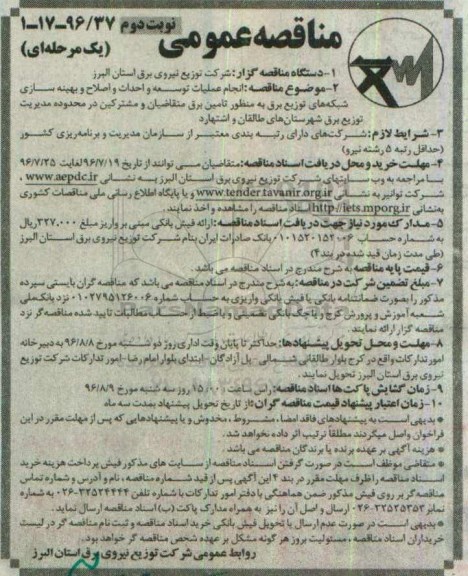 مناقصه عمومی
نوبت دوم ۹۶/۳۷-۱۷-۱
(یک مرحله‌ای)
۱- دستگاه مناقصه گزار: شرکت توزیع نیروی برق استان البرز
۲- موضوع مناقصه: انجام عملیات توسعه و احداث و اصلاح و بهینه سازی
شبکه‌های توزیع برق به منظور تامین برق متقاضیان و مشترکین در محدوده مدیریت
توزیع برق شهرستان‌های طالقان و اشتهارد
۳- شرایط لازم: شرکت‌های دارای رتبه بندی معتبر از سازمان مدیریت و برنامه‌ریزی کشور
(حداقل رتبه ۵ رشته نیرو)
۴- مهلت خرید و محل دریافت اسناد مناقصه: متقاضیان می توانند از تاریخ ۹۶/۷/۱۹ لغایت ۹۶/۷/۲۵
با مراجعه به وب سایتهای شرکت توزیع نیروی برق استان البرز به نشانی www.aepdc.ir ،
شرکت توانیر به نشانی www.tender.tavanir.org.ir و یا پایگاه اطلاع رسانی ملی مناقصات کشوری
به‌نشانی http://iets.mporg.ir اسناد مناقصه را مشاهده و اخذ نمایند.
۵- مدارک مورد نیاز جهت دریافت اسناد مناقصه: ارائه فیش بانکی مبنی بر واریز مبلغ ۳۲۷.۰۰۰ ریال
به شماره حساب ۰۱۰۱۵۲۰۱۵۲۰۰۶ بانک صادرات ایران بنام شرکت توزیع نیروی برق استان البرز
(طی مدت زمان قید شده در بند ۴)
۶- قیمت پایه مناقصه به شرح مندرج در اسناد مناقصه می باشد.
۷- مبلغ تضمین شرکت در مناقصه: به شرح مندرج در اسناد مناقصه می باشد که مناقصه گران بایستی سپرده
مذکور را بصورت ضمانتنامه بانکی یا فیش بانکی واریزی به حساب شماره ۰۱۰۲۷۹۵۱۲۶۰۰۶ نزد بانک ملی
شعبه آموزش و پرورش کرج و یا چک بانکی تضمینی و یا ضبط از حساب مطالبات تایید شده مناقصه گر نزد
مناقصه گزار ارائه نمایند.
۸- مهلت و محل تحویل پیشنهادها: حداکثر تا پایان وقت اداری روز دو شنبه مورخ ۹۶/۸/۸ به دبیرخانه
امور تدارکات واقع در کرج بلوار طالقانی شمالی- پل آزادگان- ابتدای بلوار امام رضا- امور تدارکات شرکت توزیع
نیروی برق استان البرز تحویل نمایند.
۹- زمان گشایش پاکت ها اسناد مناقصه: راس ساعت ۱۵:۰۰ روز سه شنبه مورخ ۹۶/۸/۹
۱۰- زمان اعتبار پیشنهاد قیمت مناقصه گران: از تاریخ تحویل پیشنهاد بمدت سه ماه
* بدیهی است به پیشنهادهای فاقد امضا، مشروط، مخدوش و یا پیشنهادهایی که پس از مهلت مقرر در این
فراخوان واصل میگردند مطلقا ترتیب اثر داده نخواهد شد.
* هزینه آگهی بر عهده برنده یا برندگان مناقصه می باشد.
* متقاضی موظف است در صورت گرفتن اسناد مناقصه از سایت های مذکور فیش پرداخت هزینه خرید
اسناد مناقصه را ظرف مهلت مقرر در بند ۴ این آگهی پس از قید شماره مناقصه، نام و آدرس و شماره تماس
مناقصه گر بر روی فیش مذکور ضمن هماهنگی با دفتر امور تدارکات با شماره تلفن ۳۲۵۲۴۴۴۴-۰۲۶ به شماره
نمابر ۳۲۵۲۵۳۵۲-۰۲۶ ارسال و اصل آن را نیز به همراه مدارک پاکت (ب) اسناد مناقصه ارسال نماید.
* بدیهی است در صورت عدم ارسال یا تحویل فیش بانکی خرید اسناد مناقصه و ثبت نام مناقصه گر در لیست
خریداران اسناد مناقصه، مسئولیت بروز هر گونه مشکل بر عهده شخص مناقصه گر خواهد بود.
روابط عمومی شرکت توزیع نیروی برق استان البرز